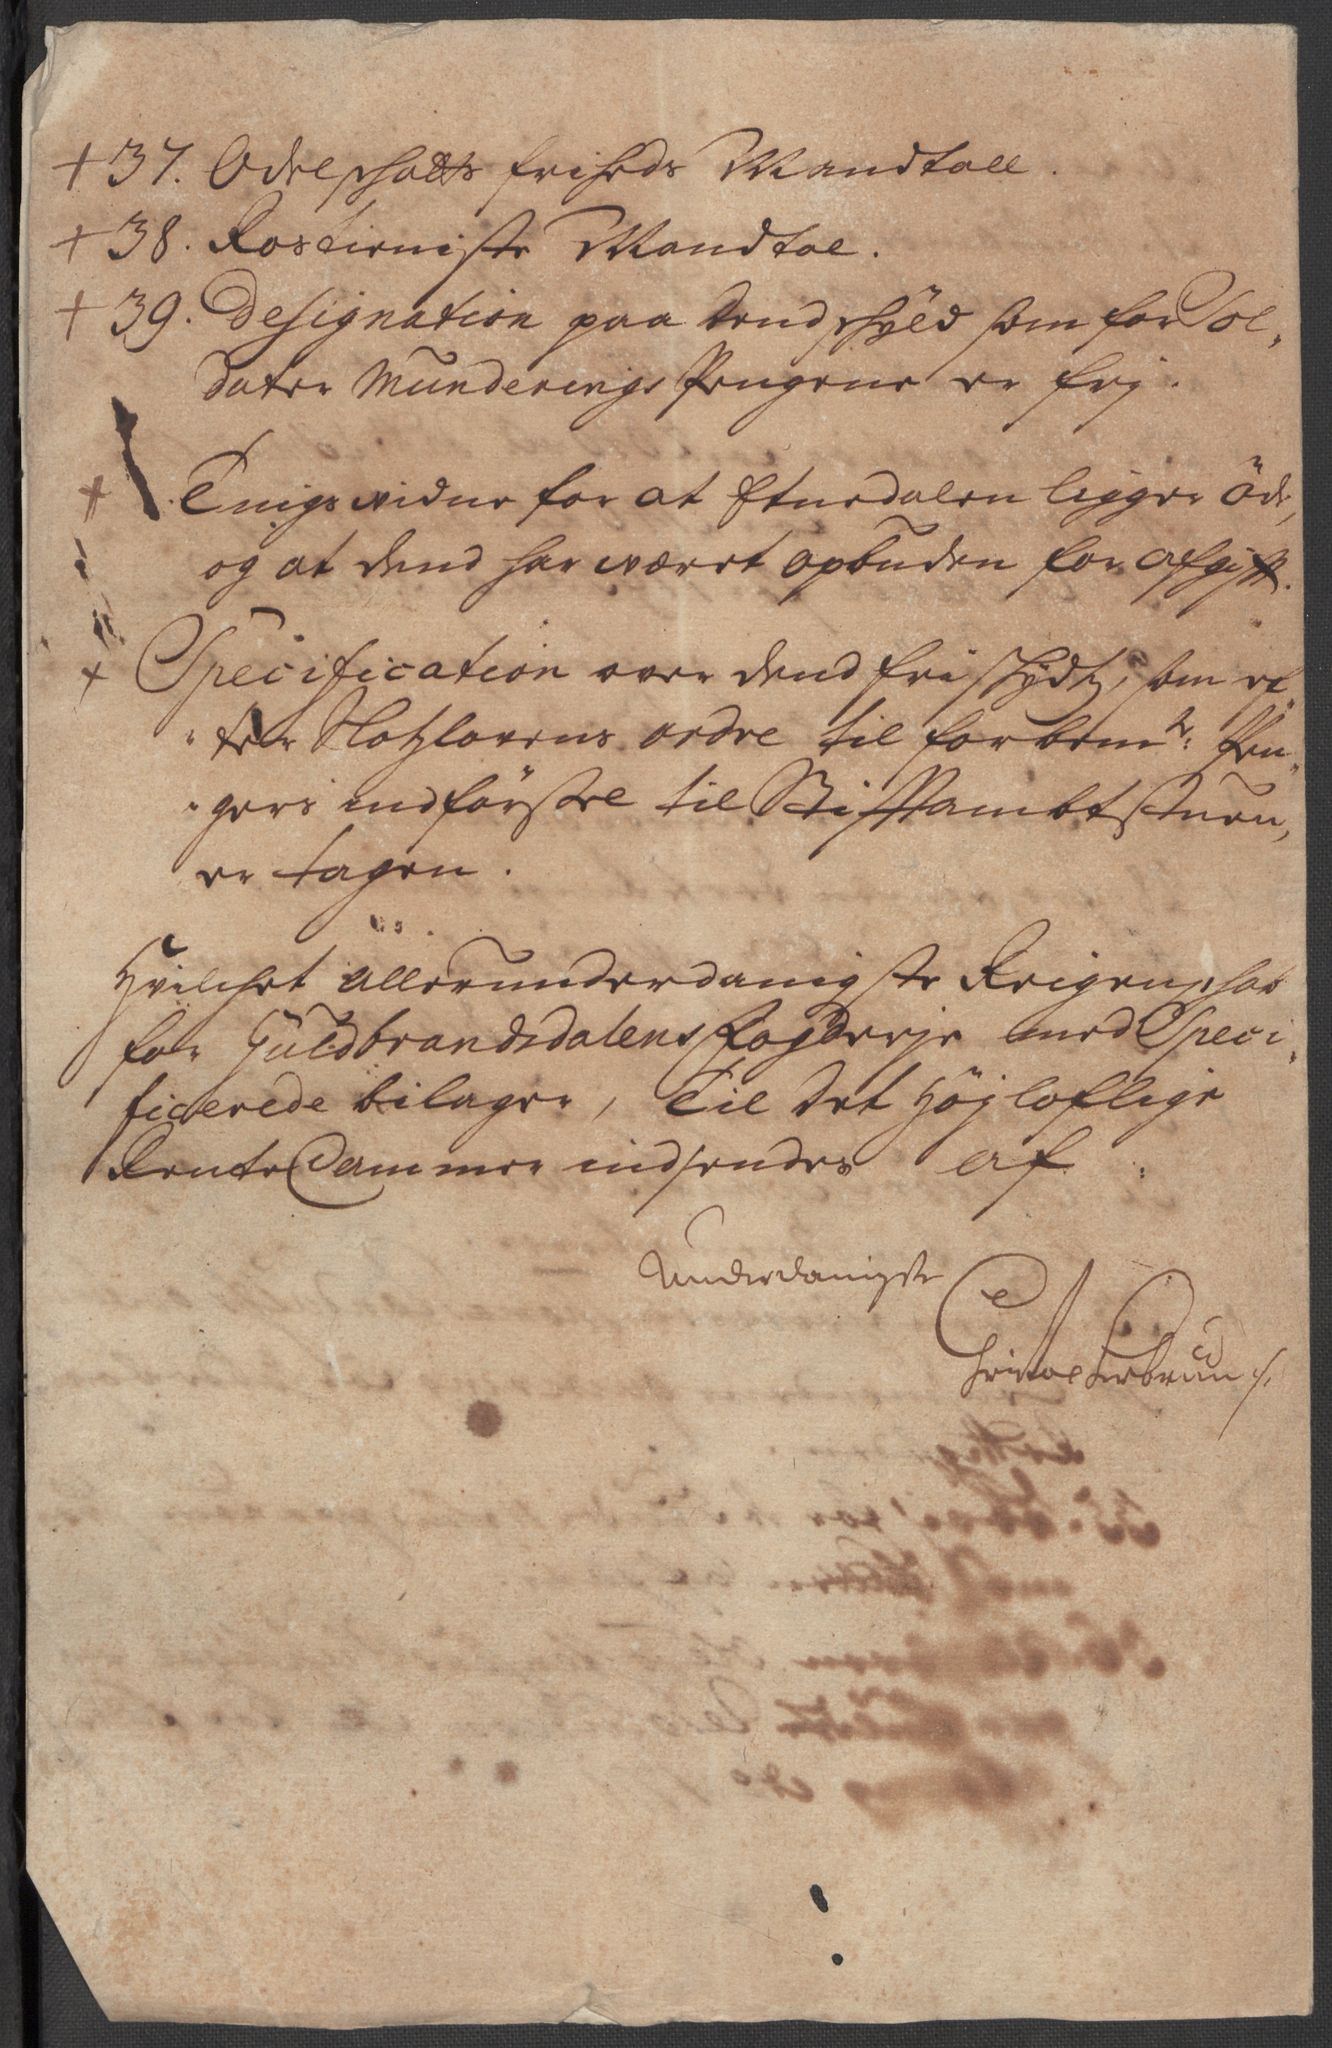 + 37. Odelskatts friheds Mandtall.
+ 38. Rostieniste Mandtal.
+ 39. Designation paa dend skyld som for Sol-
dater Munderings Pengene er frj.
+ Tingsvidne for at Etnedalen ligger öde,
og at dend har været opbuden for afgift.
+ Specification over dend fri skydtz, som ef-
ter Slotzlovens ordre til forbemte Pen-
gers indförsel til Stiftambtstuen,
er tagen.
Hvilchet allerunderdanigste Reigenskab
for Guldbrandsdalens fogderje med Speci-
ficerede bilager, Til det Höjloflige
Rente Cammer indsendes af
Underdanigste